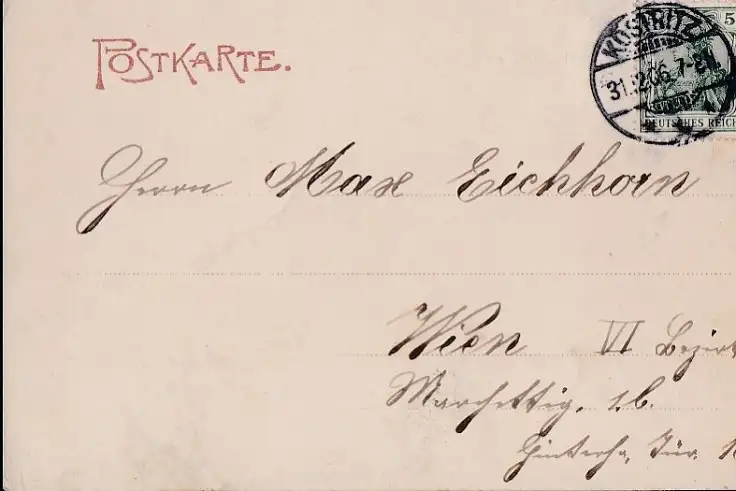 POSTKARTE.
KÖSTRITZ
31.12.06. 7-8N.
5
DEUTSCHES REICH
Herrn Max Eichhorn
Wien VI Bezirk
Marchettig. 1.b.
Hinterhs, Tür.